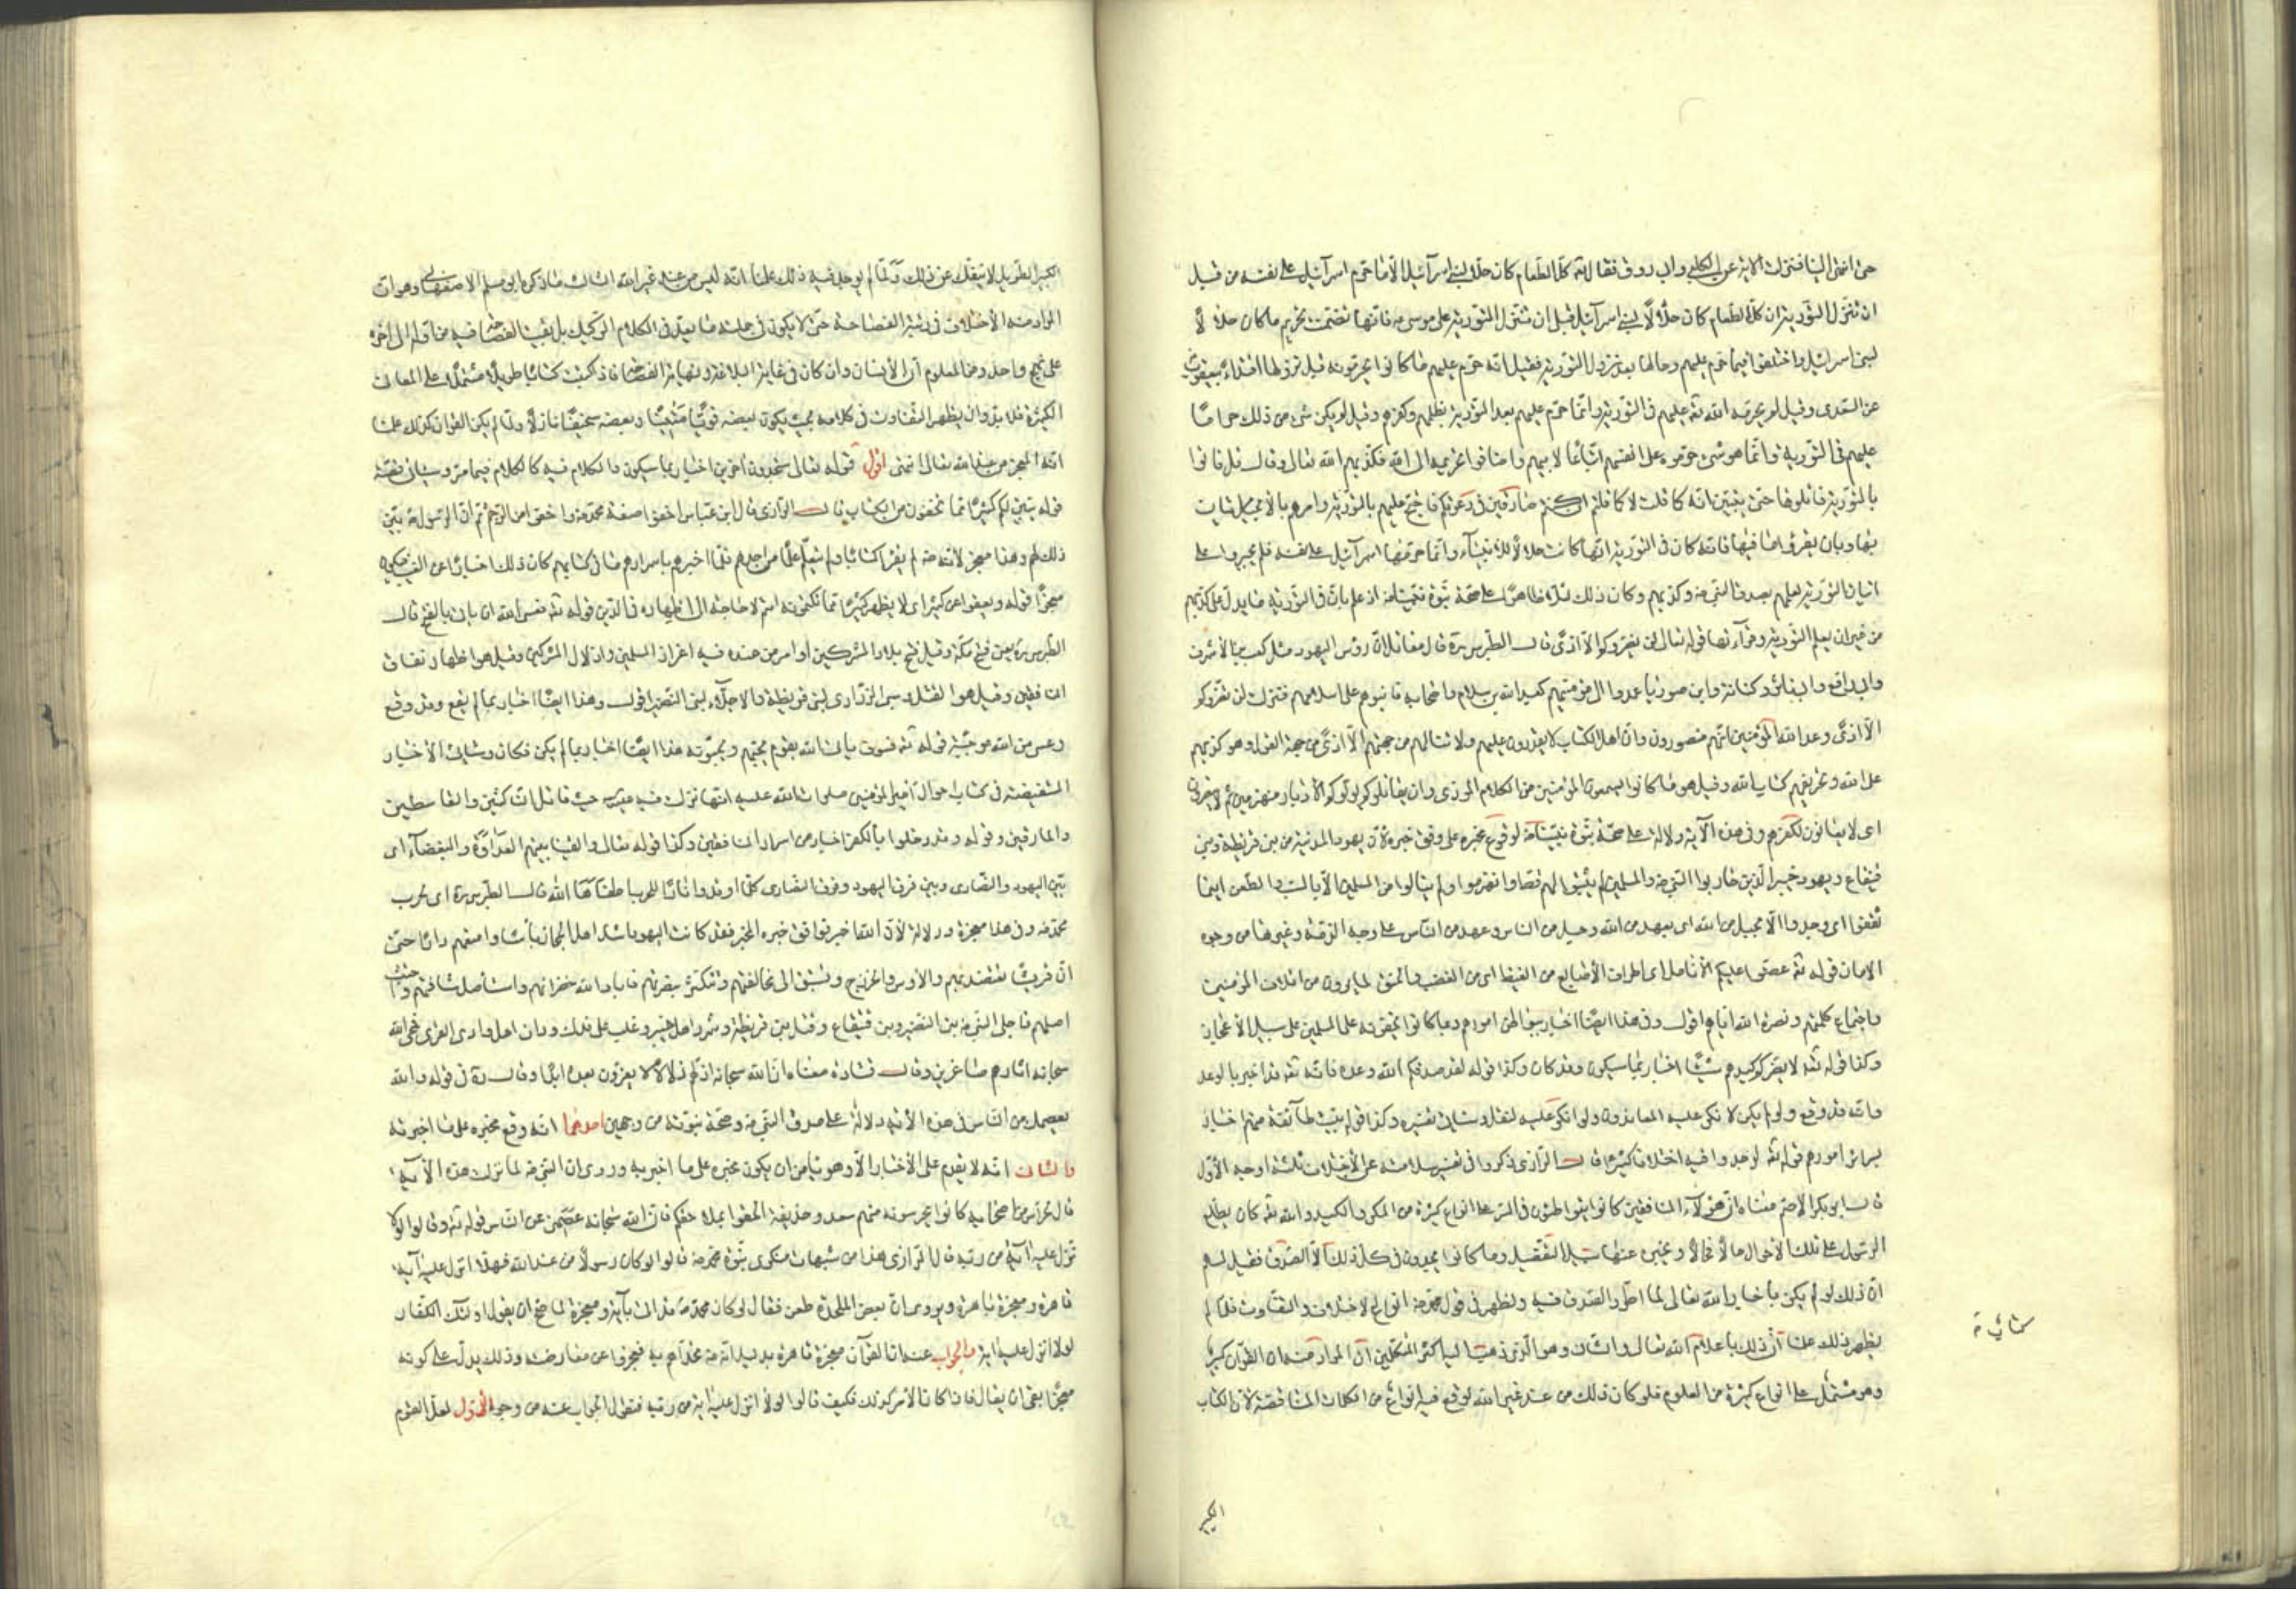 حتى انتهى الينا فنزلت الآية عن الكلبي وابي روق فقال تع كل الطعام كان حلا لبني اسرآئيل الا ما حرم اسرآئيل على نفسه من قبل
ان تنزل التورية ان كل الطعام كان حلالا لبني اسرآئيل قبل ان تنزل التورية على موسى فانها تضمنت تحريم ما كان حلالا
لبني اسرائيل واختلفوا فيما حرم عليهم وحالها بعد نزول التورية فقيل انه حرم عليهم ما كانوا يحرمونه قبل نزولها اقتداء بيعقوب
عن السدي وقيل لم يحرمه الله تع عليهم في التورية وانما حرم عليهم بعد التورية بظلمهم وكفرهم وقيل لم يكن شيء من ذلك حراما
عليهم في التورية وانما هو شيء حرموه على انفسهم اتباعا لابيهم واضافوا تحريمه الى الله فكذبهم الله تعالى وقال قل فاتوا
بالتورية فاتلوها حتى يتبين انه كما قلت لا كما قلتم ان كنتم صادقين في دعوتكم فاحتج عليهم بالتورية وامرهم بالاتيان
بها وبان يقرؤا ما فيها فانه كان في التورية انها كانت حلالا للانبيآء وانما حرمها اسرآئيل على نفسه فلم يجسروا على
اتيان التورية لعلمهم بصدق النبي ص وكذبهم وكان ذلك دلالة ظاهرة على صحة نبوة نبينا ص اذ علم بان في التورية ما يدل على كذبهم
من غير ان يعلم التورية وقرآءتها قوله تعالى لن يضروكم الا اذى قال الطبرسي ره قال مقاتل ان رؤس اليهود مثل كعب بن الاشرف
وابي رافع وابي ياسر وكنانة وابن صوريا عمدوا الى مؤمنيهم كعبد الله بن سلام واصحابه فانبوهم على اسلامهم فنزلت لن يضروكم
الا اذى وعد الله المؤمنين انهم منصورون وان اهل الكتاب لا يقدرون عليهم ولا تنالهم من جهتهم الا اذى من جهة القول وهو كذبهم
على الله وتحريفهم كتاب الله وقيل هو ما كانوا يسمعون المؤمنين من الكلام المؤذي وان يقاتلوكم يولوكم الادبار منهزمين ثم لا ينصرون
اى لا يعانون لكفرهم وفي هذه الآية دلالة على صحة نبوة نبينا ص لوقوع مخبره على وفق خبره لان يهود المدينة من بني قريظة وبني
قينقاع ويهود خيبر الذين حاربوا النبي ص والمسلمين لم يثبتوا لهم قط وانهزموا ولم ينالوا من المسلمين الا بالسب والطعن اينما
ثقفوا اى وجدوا الا بحبل من الله اى بعهد من الله وحبل من الناس وعهد من الناس على وجه الذمة وغيرها من وجوه
الامان قوله تع عضوا عليكم الانامل اى اطراف الاصابع من الغيظ اى من الغضب والحنق لما يرون من ائتلاف المؤمنين
واجتماع كلمتهم ونصرة الله اياهم اقول وفي هذا ايضا اخبار ببواطن امورهم وما كانوا يخفونه على المسلمين على سبيل الاعجاز
وكذا قوله تع لا يضركم كيدهم شيئا اخبار بما سيكون وقد كان وكذا قوله لقد صدقكم الله وعده فانه تع قد اخبر بالوعد
وانه قد وقع ولو لم يكن لانكر عليه المعاندون ولو انكر عليه لنقل وسياتي تفسيره وكذا قوله بيت طآئفة منهم اخبار
بسرائر امورهم قوله تع لوجدوا فيه اختلافا كثيرا قال الرازي ذكروا في تفسير سلامته عن الاختلاف ثلثة اوجه الاول
قال ابو بكر الاصم معناه ان هؤلآء المنافقين كانوا يتواطئون في السر على انواع كثيرة من المكر والكيد والله تع كان يطلع
الرسول على تلك الاحوال حالا فحالا ويخبره عنها سبيل التفصيل وما كانوا يجدون في كل ذلك الا الصدق فقيل لهم
ان ذلك لو لم يكن باخبار الله تعالى لما اطرد الصدق فيه ولظهر في قول محمد ص انواع الاختلاف والتفاوت فلما لم
يظهر ذلك علمنا ان ذلك باعلام الله تعالى والثاني وهو الذي ذهب اليه اكثر المتكلمين ان المراد منه ان القرآن كبير
وهو مشتمل على انواع كثيرة من العلوم فلو كان ذلك من عند غير الله لوقع فيه انواع من الكلمات المتناقضة لان الكتاب
الكبير
الكبير الطويل لا ينفك عن ذلك ولما لم يوجد فيه ذلك علمنا انه ليس من عند غير الله الثالث ما ذكره ابو مسلم الاصفهاني وهو ان
المراد منه الاختلاف في رتبة الفصاحة حتى لا يكون في جملته ما يعد في الكلام الركيك بل بقيت الفصاحة فيه من اوله الى آخره
على نهج واحد ومن المعلوم ان الانسان وان كان في غاية البلاغة ونهاية الفصاحة فاذا كتب كتابا طويلا مشتملا على المعاني
الكثيرة فلا بد وان يظهر التفاوت في كلامه بحيث يكون بعضه قويا متينا وبعضه سخيفا نازلا ولما لم يكن القرآن كذلك علمنا
انه المعجز من عند الله تعالى انتهى اقول قوله تعالى ستجدون آخرين اخبار بما سيكون والكلام فيه كالكلام فيما مر وسياتي قصته
قوله يبين لكم كثيرا مما تخفون من الكتاب قال الرازي قال ابن عباس اخفوا صفة محمد ص واخفوا امر الرجم ثم ان الرسول ص بين
ذلك لهم وهذا معجز لانه ص لم يقرأ كتابا ولم يتعلم علما من احد فلما اخبرهم باسرار ما في كتابهم كان ذلك اخبارا عن الغيب فيكون
معجزا قوله ويعفو عن كثير اى لا يظهر كثيرا مما تكتمونه انتم لانه لا حاجة الى اظهاره في الدين قوله تع فعسى الله ان ياتي بالفتح قال
الطبرسي ره يعني فتح مكة وقيل فتح بلاد المشركين او امر من عنده فيه اعزاز المسلمين واذلال المشركين وقيل هو اظهار نفاق
المنافقين وقيل هو القتل وسبي الذراري لبني قريظة والاجلآء لبني النضير اقول وهذا ايضا اخبار بما لم يقع وقد وقع
وعسى من الله موجبة قوله تع فسوف ياتي الله بقوم يحبهم ويحبونه هذا ايضا اخبار بما لم يكن فكان وستاتي الاخبار
المستفيضة في كتاب احوال امير المؤمنين صلوات الله عليه انها نزلت فيه حيث قاتل الناكثين والقاسطين
والمارقين وقوله وقد دخلوا بالكفر اخبار من اسرار المنافقين وكذا قوله تعالى والقينا بينهم العداوة والبغضآء اى
بين اليهود والنصارى وبين فرق اليهود وفرق النصارى كلما اوقدوا نارا للحرب اطفاها الله قال الطبرسي ره اى لحرب
محمد ص وفي هذا معجزة ودلالة لان الله اخبر فوافق خبره المخبر فقد كانت اليهود اشد اهل الحجاز باسا وامنعهم دارا حتى
ان قريشا تعتضد بهم والاوس والخزرج تستبق الى مخالفتهم وتتكثر بنصرتهم فاباد الله خضرائهم واستاصل شافتهم واجتث
اصلهم فاجلى النبي ص بني النضير وبني قينقاع وقتل بني قريظة وشرد اهل خيبر وغلب على فدك ودان اهل وادي القرى فمحى الله
سبحانه آثارهم صاغرين وقال قتادة معناه ان الله سبحانه اذلهم ذلا لا يعزون بعده ابدا وقال ره في قوله والله
يعصمك من الناس في هذه الآية دلالة على صدق النبي ص وصحة نبوته من وجهين احدهما انه وقع مخبره على ما اخبر به
والثاني انه لا يقدم على الاخبار الا وهو يامن ان يكون مخبره على ما اخبر به وروي ان النبي ص لما نزلت هذه الآية
قال لحراس من اصحابه كانوا يحرسونه منهم سعد وحذيفة الحقوا بملاحقكم فان الله سبحانه عصمني عن الناس قوله تع وقالوا لولا
نزل عليه آية من ربه قال الرازي هذا من شبهات منكري نبوة محمد ص قالوا لو كان رسولا من عند الله فهلا انزل عليه آية
قاهرة ومعجزة باهرة ويروى ان بعض الملحدة طعن فقال لو كان محمد ص قد اتى بآية ومعجزة لما صح ان يقول اولئك الكفار
لولا انزل عليه آية والجواب عنه ان القرآن معجزة قاهرة بدليل انه ص تحداهم به فعجزوا عن معارضته وذلك يدل على كونه
معجزا بقي ان يقال فاذا كان الامر كذلك فكيف قالوا لولا انزل عليه آية من ربه فنقول الجواب عنه من وجوه الاول لعل القوم